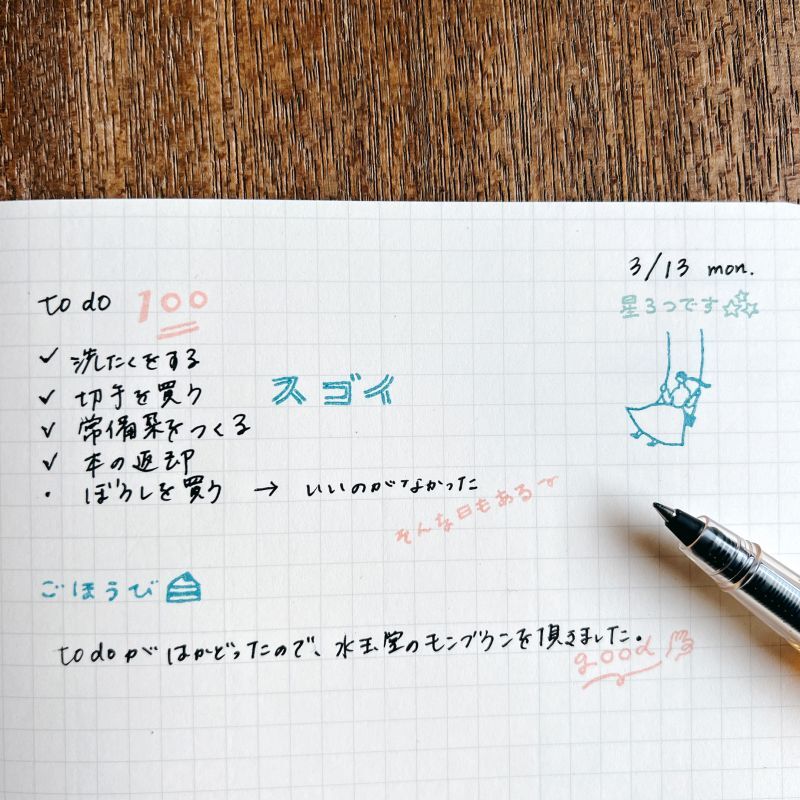 3/13 mon.
星3つです
to do 100
✓ 洗たくをする
✓ 切手を買う
スゴイ
✓ 常備菜をつくる
✓ 本の返却
・ ぼうしを買う → いいのがなかった
そんな日もある
ごほうび
to do がはかどったので、水玉堂のモンブランを頂きました。
good